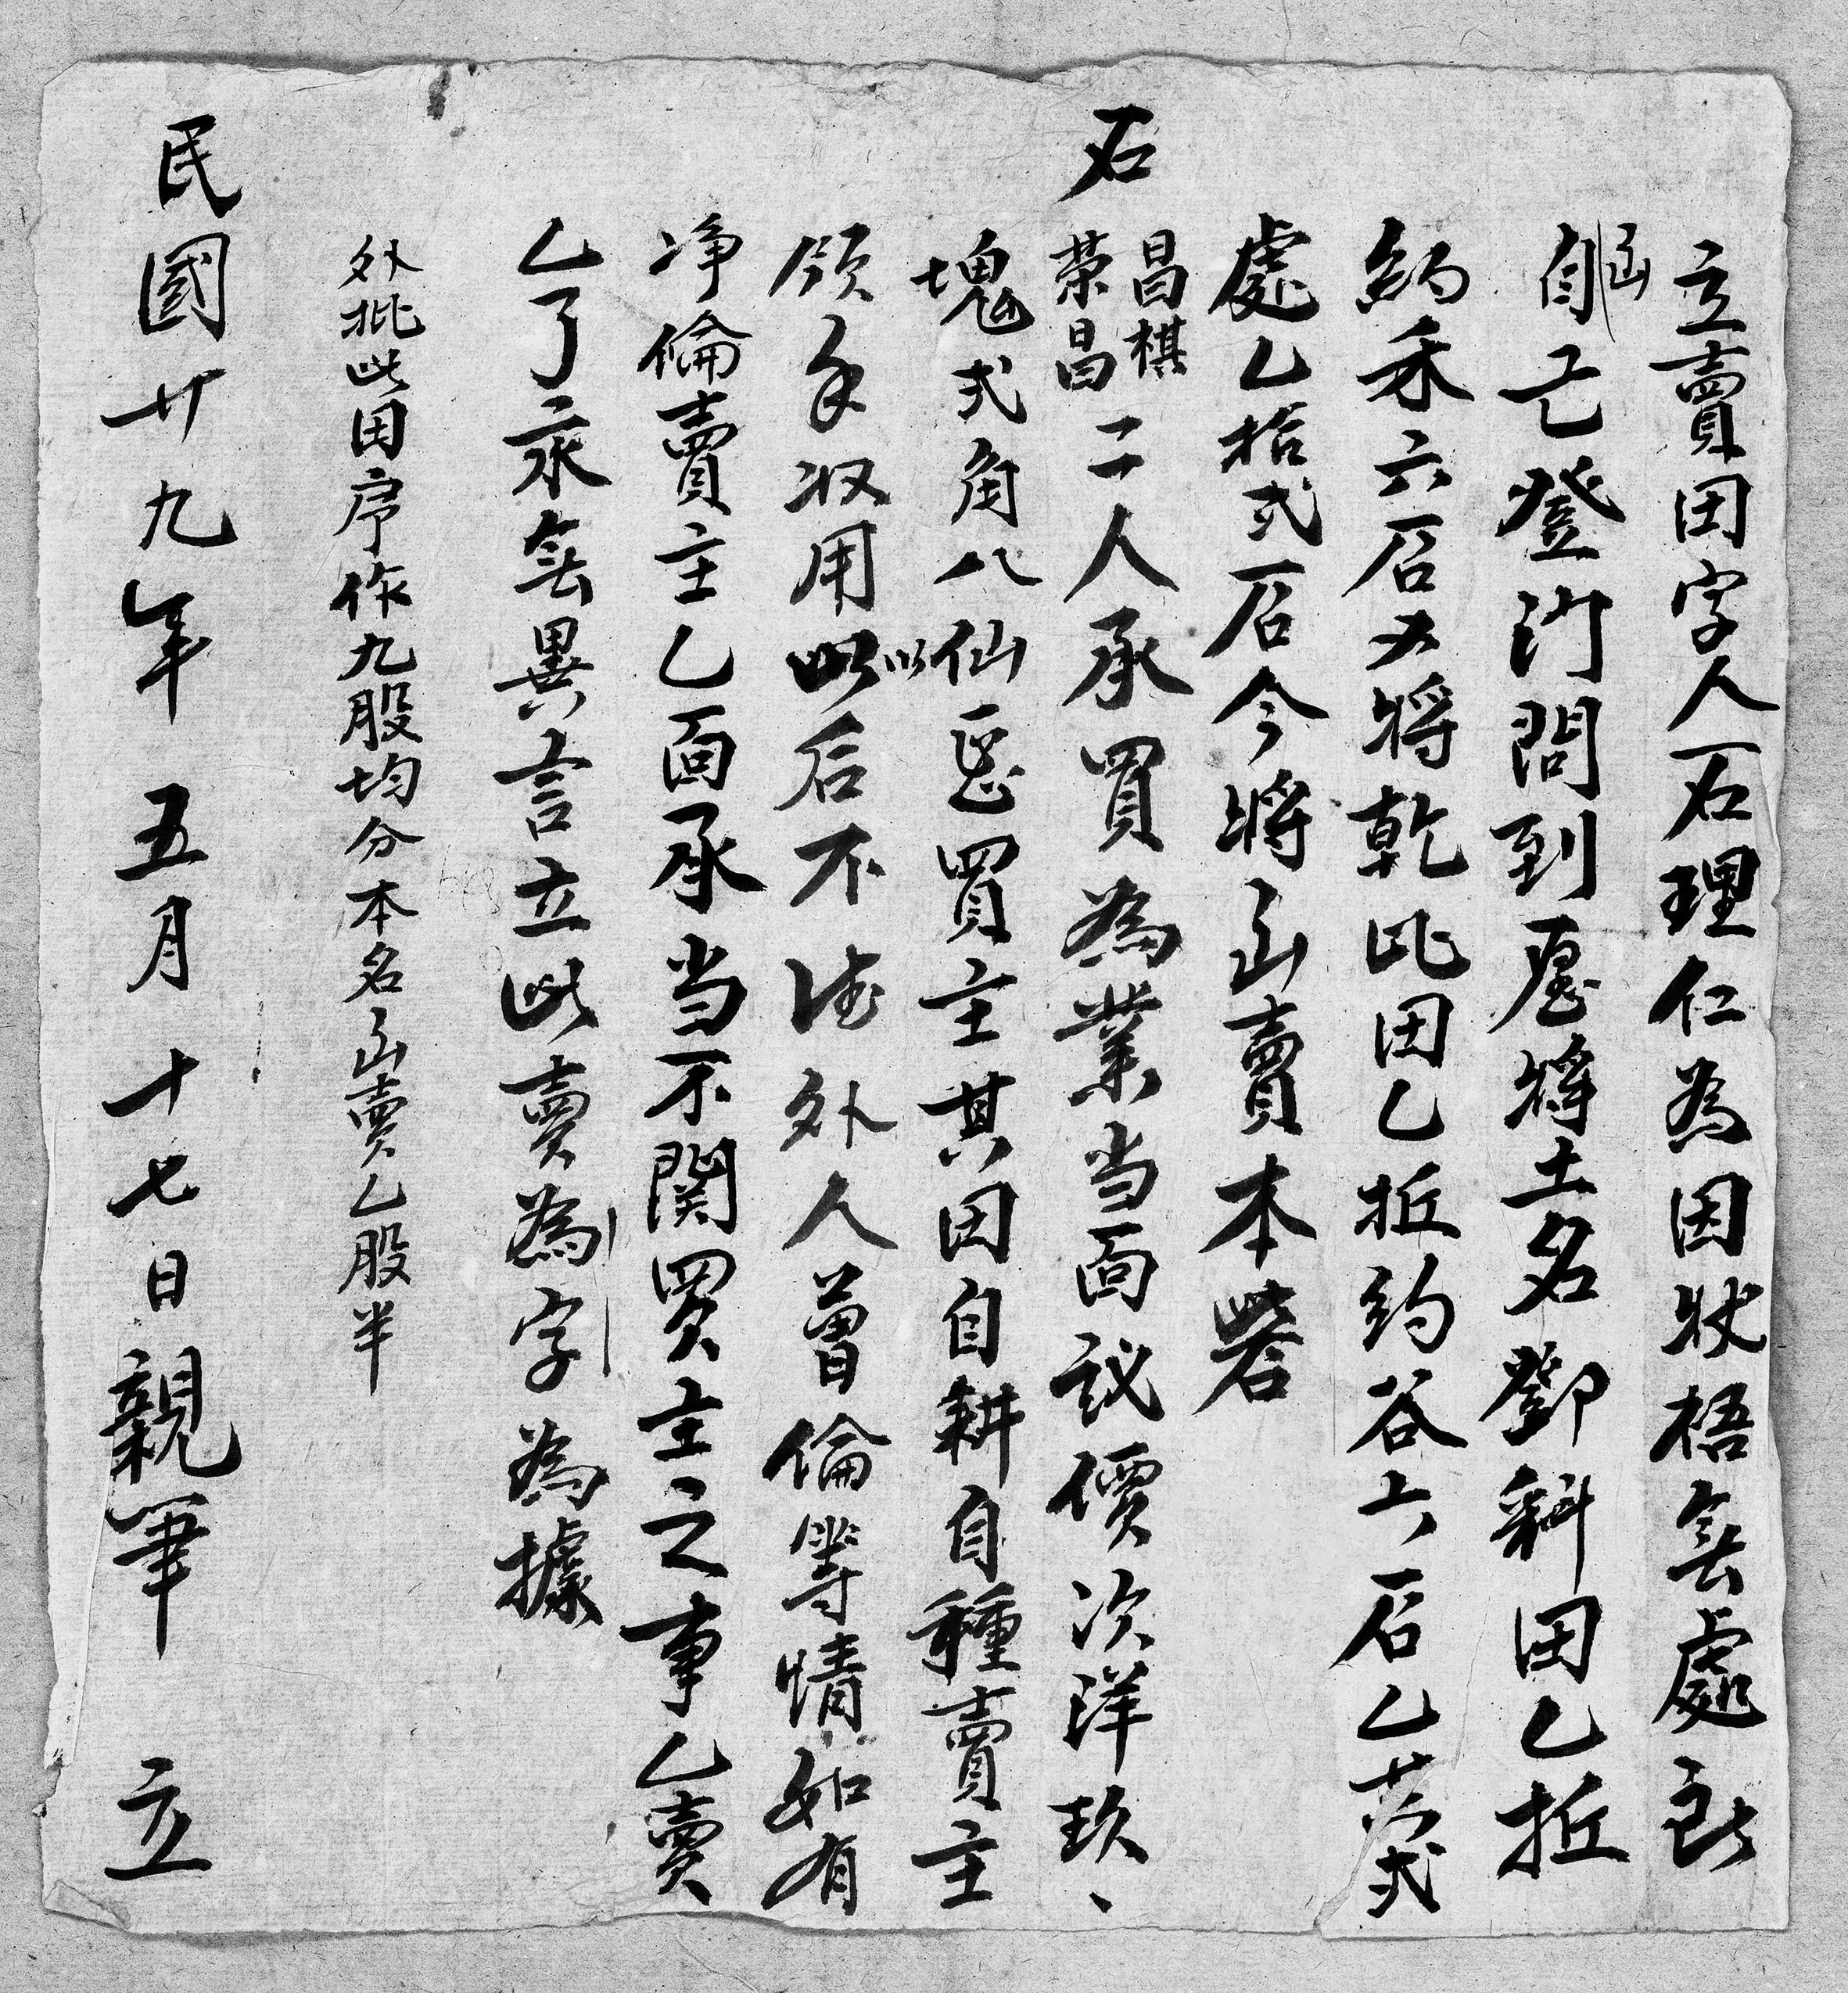 立賣田字人石理仁為因狀梧無處出
自己登门問到屋將土名鄧斜田乙坵
約禾六石又將乾此田乙坵约谷六石乙共弍
處乙拾弍石今將出賣本砦
石昌棋榮昌二人承買為業当面議價次洋玖
塊弍角八仙以正買主其田自耕自種賣主
領手收用以后不洁外人曾倫等情如有
净倫賣主乙面承当不関買主之事乙賣
乙了永無異言立此賣為字為據
外批此田序作九股均分本名出賣乙股半
民國廿九年五月十七日親筆立